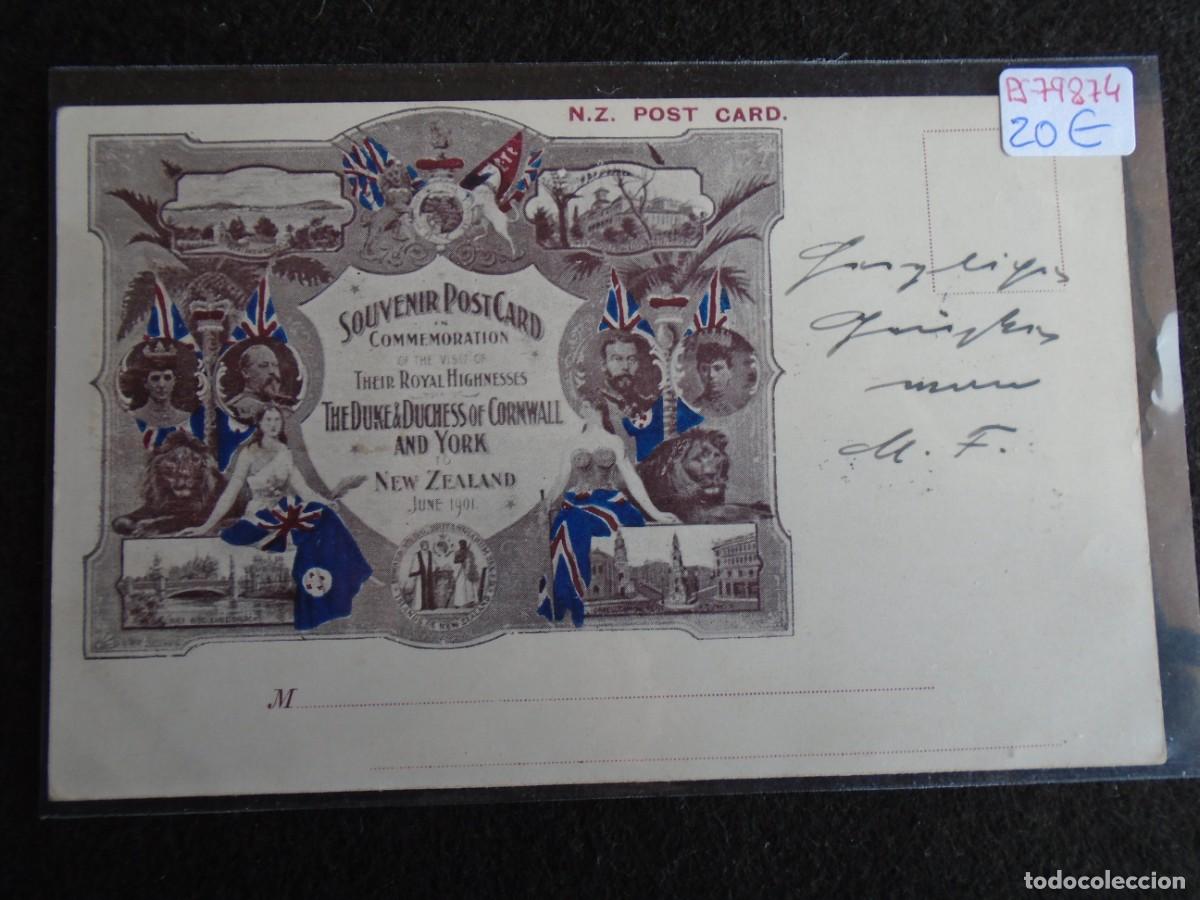 PJ79874
20€
N.Z. POST CARD.
SOUVENIR POST CARD
IN
COMMEMORATION
OF THE VISIT OF
THEIR ROYAL HIGHNESSES
THE DUKE & DUCHESS OF CORNWALL
AND YORK
TO
NEW ZEALAND
JUNE 1901.
M. F.
M
todocoleccion